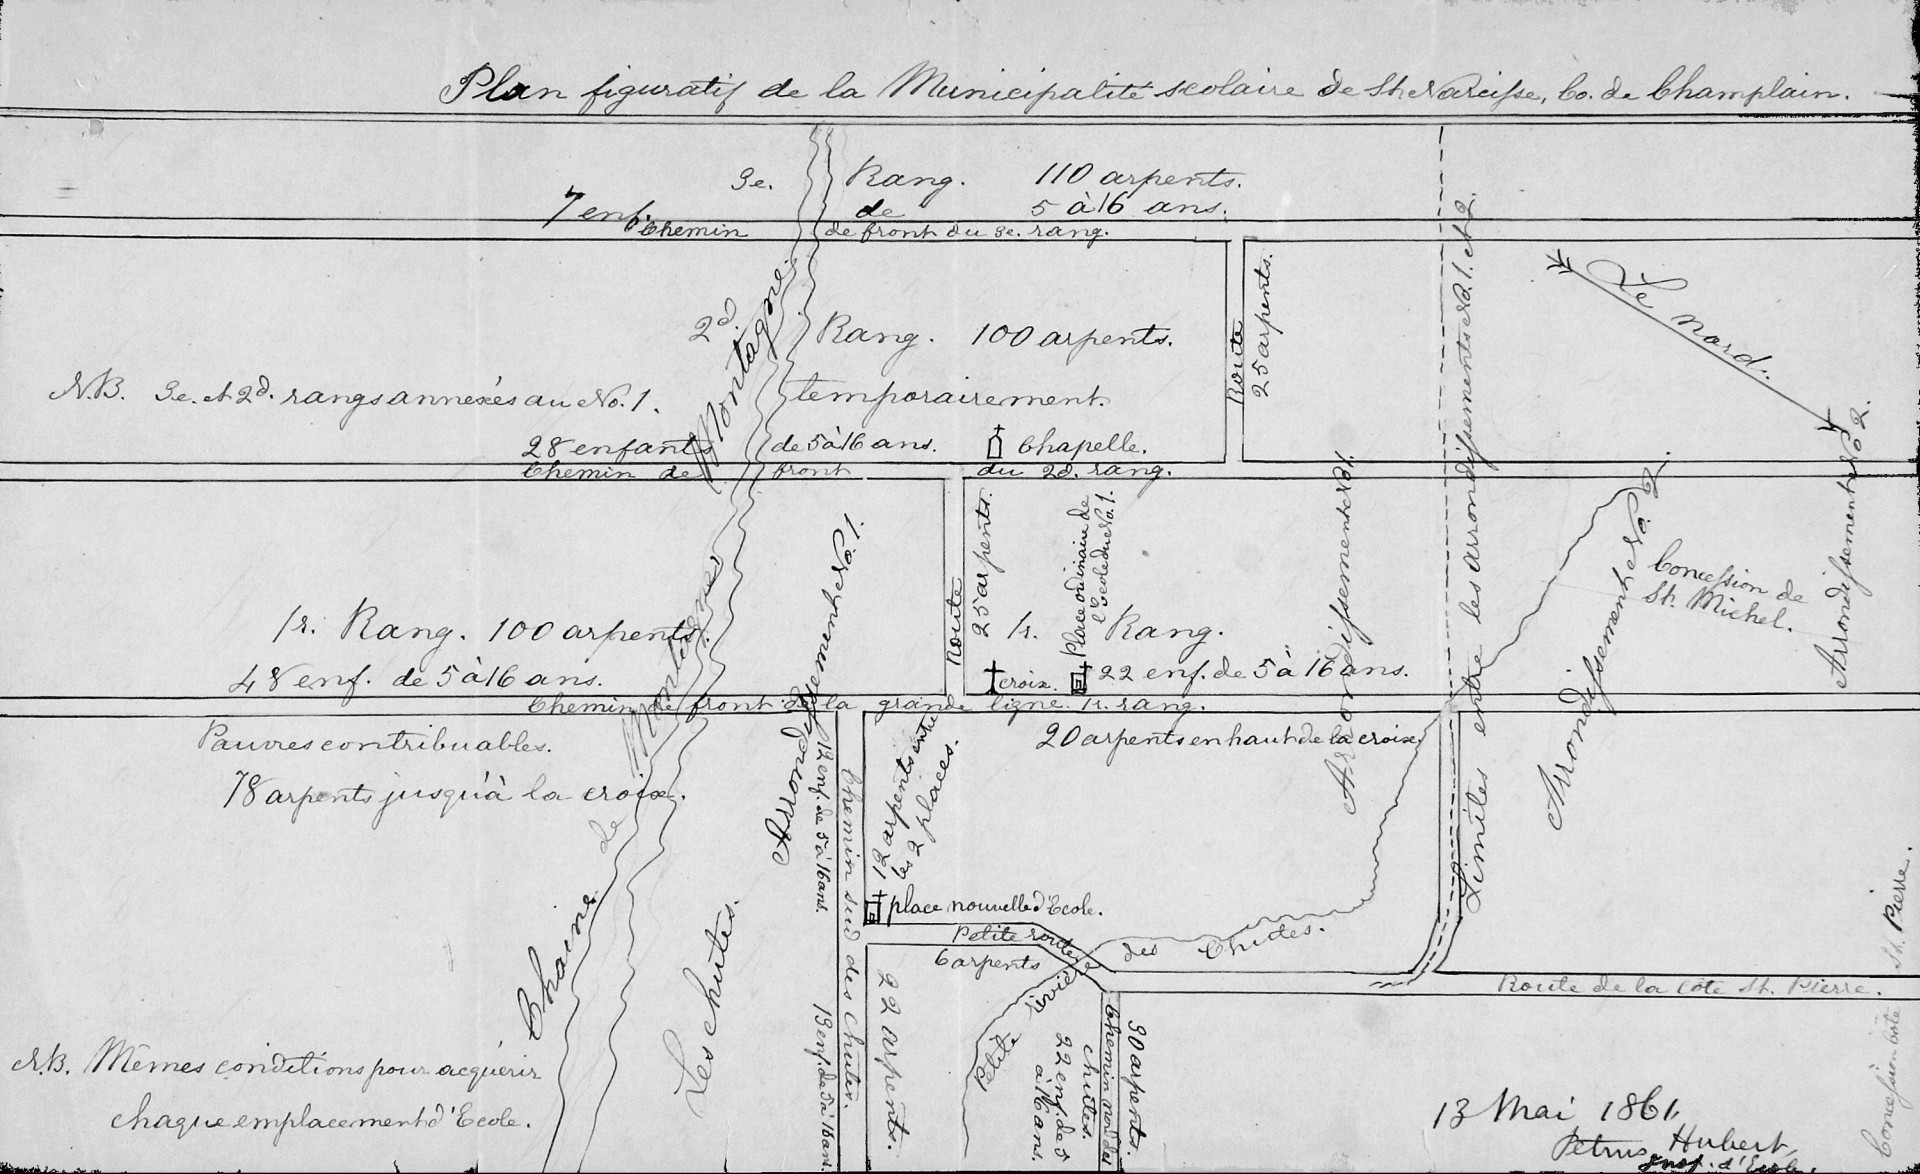 Plan figuratif de la Municipalité scolaire de St. Narcisse, Co. de Champlain.
3e. Rang. 110 arpents.
7 enf. de 5 à 16 ans.
Chemin de front du 3e. rang.
2d. Rang. 100 arpents.
N.B. 3e. et 2d. rangs annexés au No. 1. temporairement.
28 enfants de 5 à 16 ans. Chapelle.
Chemin de front du 2d. rang.
Route
25 arpents.
Le nord.
Limites entre les arrondissements No. 1. et 2.
Arrondissement No. 1.
Arrondissement No. 2.
Arrondissement No. 2.
Concession de
St. Michel.
Chaine de Montagnes
Montagne
Arrondissement No. 1.
1r. Rang. 100 arpents.
48 enf. de 5 à 16 ans.
Route
25 arpents.
Place ordinaire de
l'Ecole du No. 1.
1r. Rang.
croix. 22 enf. de 5 à 16 ans.
Chemin de front de la grande ligne 1r. rang.
Pauvres contribuables.
78 arpents jusqu'à la croix.
20 arpents en haut de la croix.
12 enf. de 5 à 16 ans.
Chemin sud des chutes.
12 arpents entre
les 2 places.
place nouvelle d'Ecole.
Petite route des Chutes.
6 arpents
Petite rivière
Les chutes.
13 enf. de 5 à 16 ans.
22 arpents.
22 enf. de 5
à 16 ans.
Chemin nord des
chutes.
30 arpents.
Route de la Côte St. Pierre.
Concession Côte St. Pierre.
N.B. Mêmes conditions pour acquérir
chaque emplacement d'Ecole.
13 Mai 1861.
Petrus Hubert,
Insp. d'Ecole.